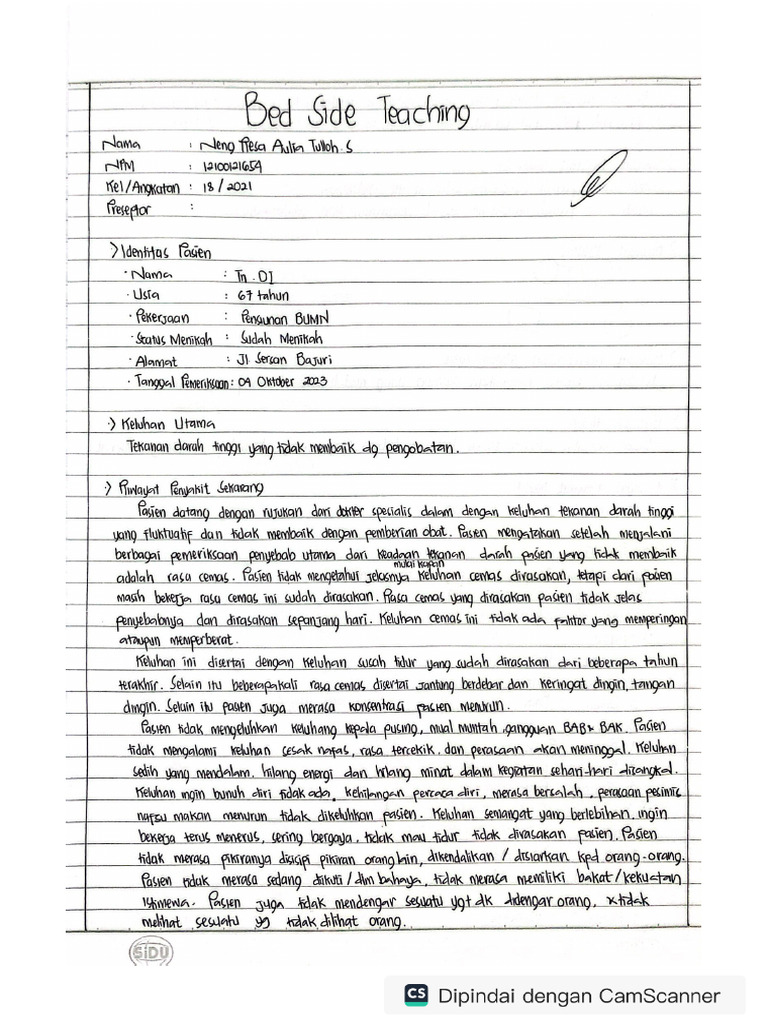 Bed Side Teaching
Nama : Neng Resa Aulia Tulloh.S
NPM : 12100121654
Kel/Angkatan : 18 / 2021
Preseptor :
> Identitas Pasien
· Nama : Tn. DJ
· Usia : 67 tahun
· Pekerjaan : Pensiunan BUMN
· Status Menikah : Sudah Menikah
· Alamat : Jl. Sersan Bajuri
· Tanggal Pemeriksaan : 04 Oktober 2023
> Keluhan Utama
Tekanan darah tinggi yang tidak membaik dg pengobatan.
> Riwayat Penyakit Sekarang
Pasien datang dengan rujukan dari dokter spesialis dalam dengan keluhan tekanan darah tinggi
yang fluktuatif dan tidak membaik dengan pemberian obat. Pasien mengatakan setelah menjalani
berbagai pemeriksaan penyebab utama dari keadaan tekanan darah pasien yang tidak membaik
adalah rasa cemas. Pasien tidak mengetahui jelasnya mulai kapan keluhan cemas dirasakan, tetapi dari pasien
masih bekerja rasa cemas ini sudah dirasakan. Rasa cemas yang dirasakan pasien tidak jelas
penyebabnya dan dirasakan sepanjang hari. Keluhan cemas ini tidak ada faktor yang memperingan
ataupun memperberat.
Keluhan ini disertai dengan keluhan susah tidur yang sudah dirasakan dari beberapa tahun
terakhir. Selain itu beberapakali rasa cemas disertai jantung berdebar dan keringat dingin, tangan
dingin. Selain itu pasien juga merasa konsentrasi pasien menurun.
Pasien tidak mengeluhkan keluhang kepala pusing, mual muntah, gangguan BAB & BAK. Pasien
tidak mengalami keluhan sesak nafas, rasa tercekik, dan perasaan akan meninggal. Keluhan
sedih yang mendalam, hilang energi dan hilang minat dalam kegiatan sehari-hari disangkal.
Keluhan ingin bunuh diri tidak ada, kehilangan percaca diri, merasa bersalah, perasaan pesimis
nafsu makan menurun tidak dikeluhkan pasien. Keluhan semangat yang berlebihan, ingin
bekerja terus menerus, sering bergaya, tidak mau tidur tidak dirasakan pasien. Pasien
tidak merasa pikiranya disisipi pikiran orang lain, dikendalikan / disiarkan kpd orang-orang.
Pasien tidak merasa sedang diikuti / dlm bahaya, tidak merasa memiliki bakat / kekuatan
istimewa. Pasien juga tidak mendengar sesuatu yg tdk didengar orang, & tidak
melihat sesuatu yg tidak dilihat orang.
SiDU
CS Dipindai dengan CamScanner